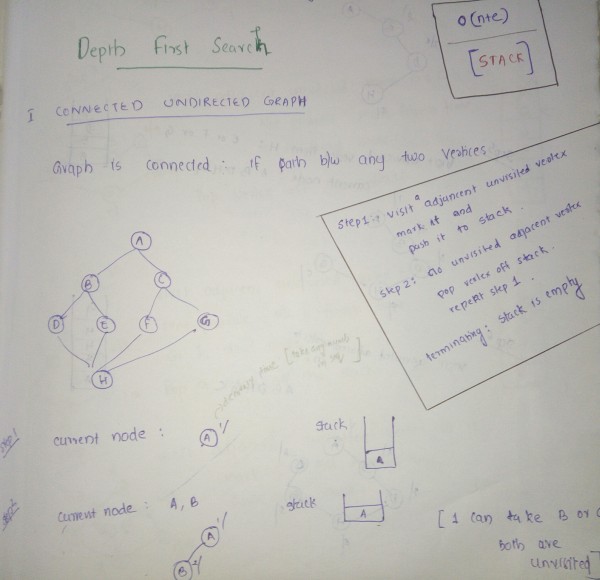 Depth First Search
O(n+e)
[STACK]
I CONNECTED UNDIRECTED GRAPH
Graph is connected : if path b/w any two vertices
Step 1 : visit a adjancent unvisited vertex
mark it and
push it to stack.
Step 2 : no unvisited adjacent vertex
pop vertex off stack.
repeat step 1.
terminating : stack is empty
A
B C
D E F G
H
Step 1
current node : A 1/
stack
A
current node : A, B
stack
A
A 1/
B 2/
[ I can take B or C
both are
unvisited ]